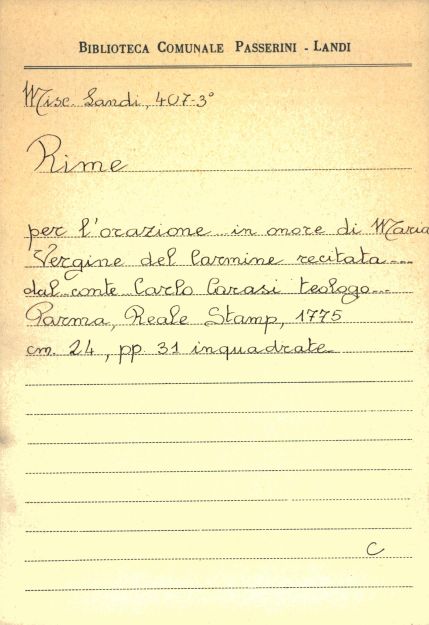 BIBLIOTECA COMUNALE PASSERINI - LANDI
Misc. Landi, 407-3°
Rime
per l'orazione in onore di Maria
Vergine del Carmine recitata---
dal conte Carlo Carasi teologo---
Parma, Reale Stamp, 1775
cm. 24, pp. 31 inquadrate
C